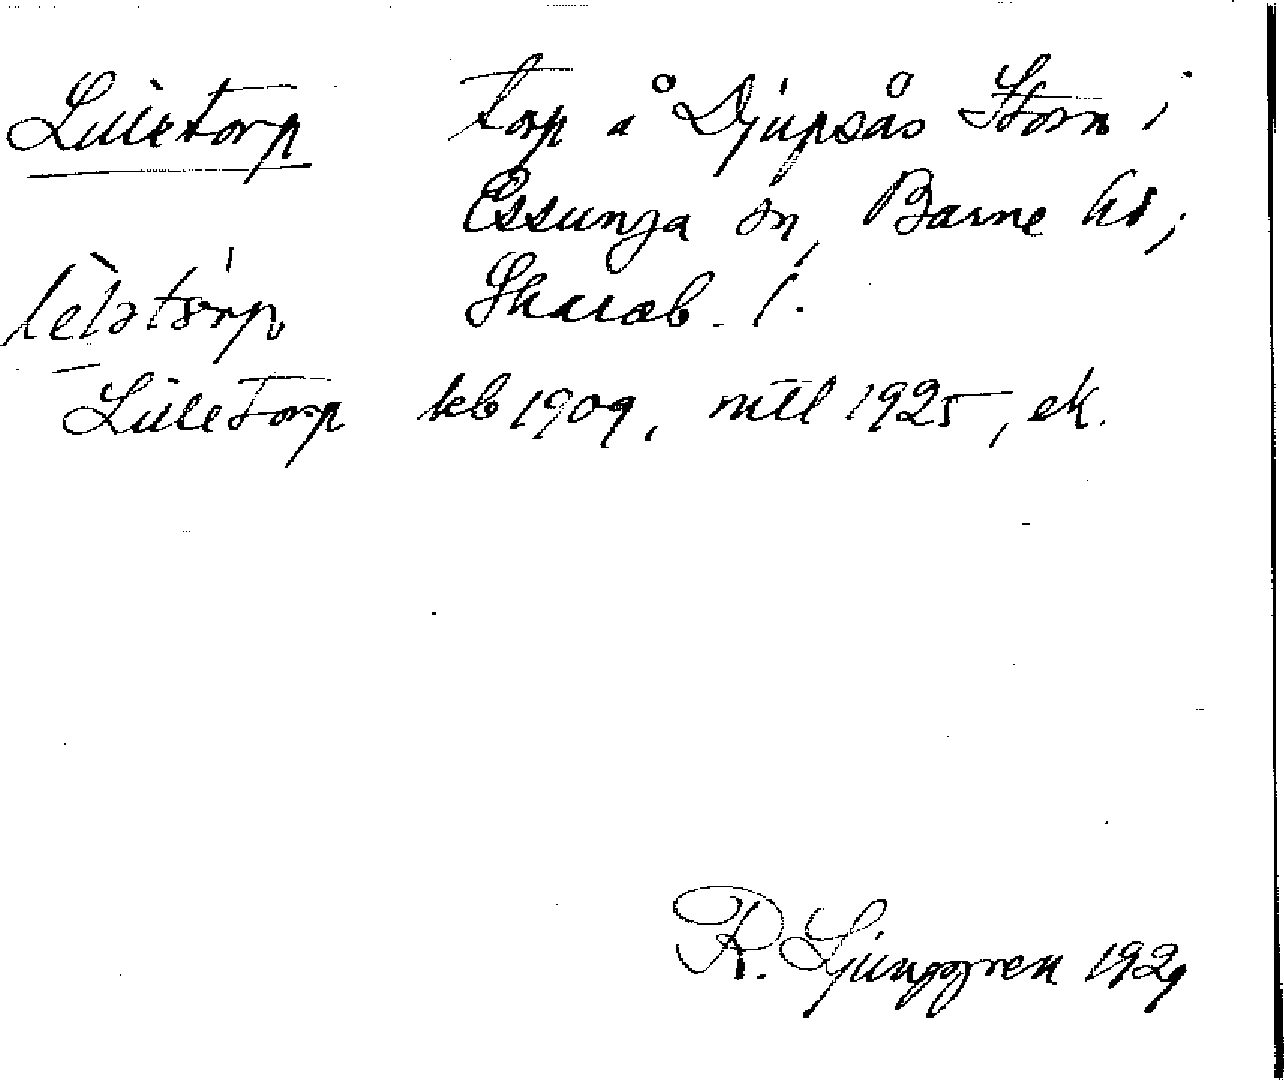 Lilletorp torp å Djupsås Stom i
Essunga sn, Barne hd,
Skarab. l.
Lilletorp kb 1909, mtl 1925, ek.
R. Ljunggren 1929